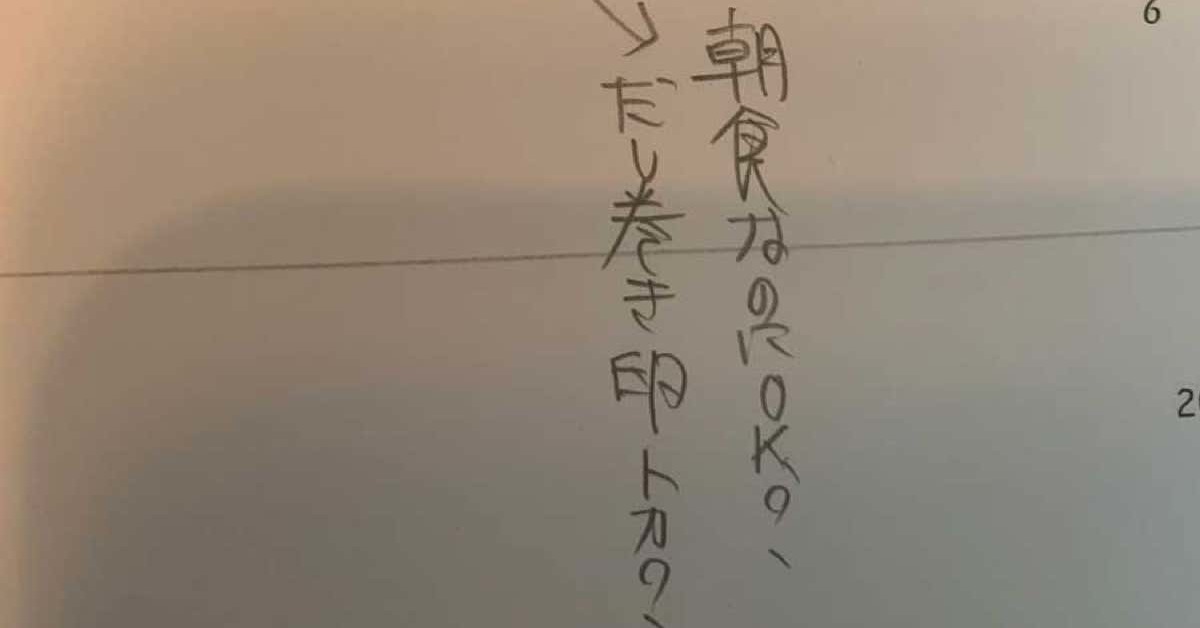 6
朝食なのにOK?
だし巻き印トカ?